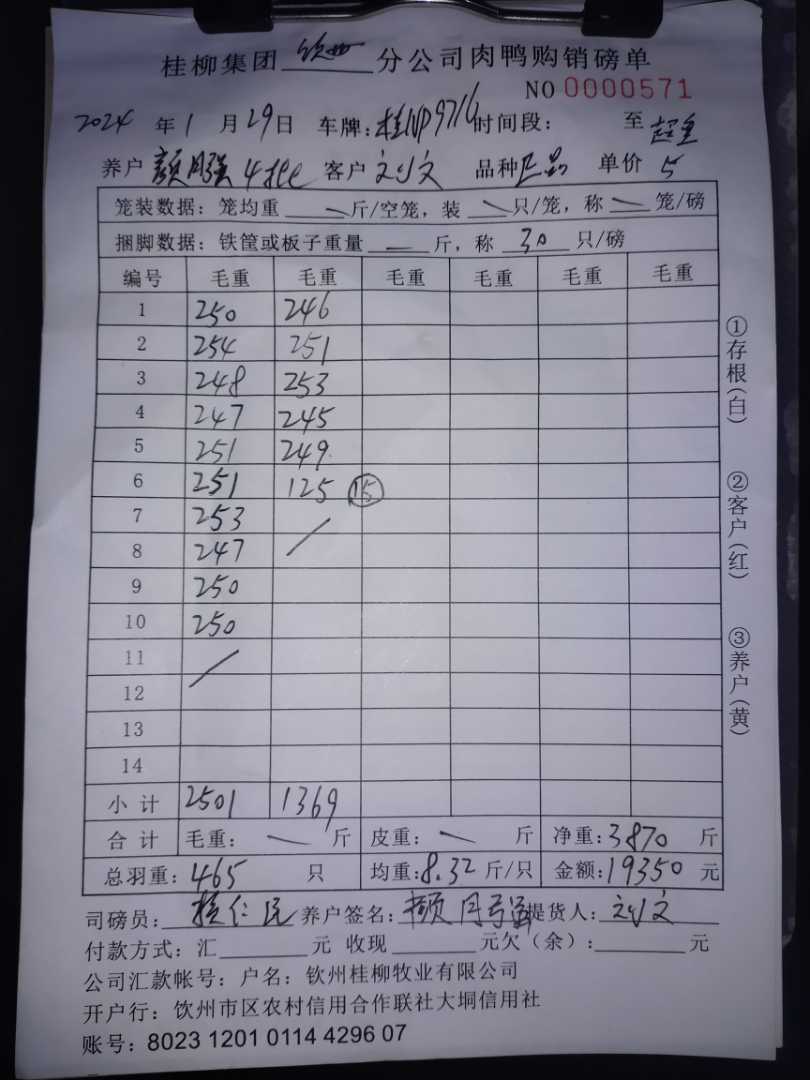 桂柳集团 钦州 分公司肉鸭购销磅单
NO 0000571
2024 年 1 月 29 日 车牌：桂NP9716 时间段： 至
养户 颜月强 4批 客户 刘文 品种 正品 单价 5
笼装数据：笼均重 — 斤/空笼，装 — 只/笼，称 — 笼/磅
捆脚数据：铁筐或板子重量 — 斤，称 30 只/磅
编号 毛重 毛重 毛重 毛重 毛重 毛重
1 250 246
2 254 251
3 248 253
4 247 245
5 251 249
6 251 125 ⑮
7 253
8 247 /
9 250
10 250
11 /
12
13
14
小计 2501 1369
合计 毛重： — 斤 皮重： — 斤 净重：3870 斤
总羽重：465 只 均重：8.32 斤/只 金额：19350 元
司磅员： 养户签名：颜月强 提货人：刘文
付款方式：汇 元 收现 元欠（余）： 元
公司汇款帐号：户名：钦州桂柳牧业有限公司
开户行：饮州市区农村信用合作联社大垌信用社
账号：8023 1201 0114 4296 07
①存根（白）
②客户（红）
③养户（黄）